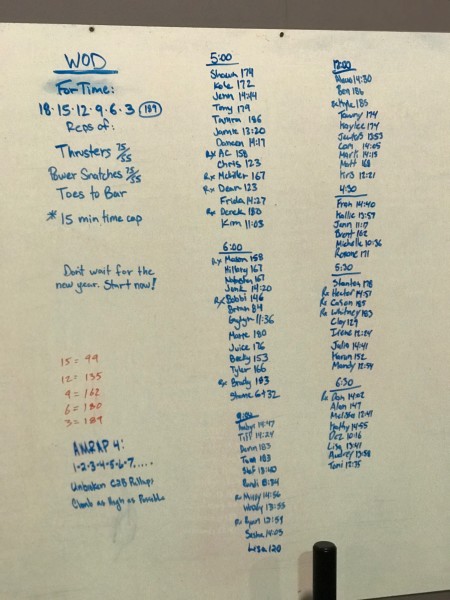 WOD
For Time:
18·15·12·9·6·3 (189)
Reps of:
Thrusters 75/55
Power Snatches 75/55
Toes to Bar
* 15 min time cap
Don't wait for the
new year. Start now!
15 = 99
12 = 135
9 = 162
6 = 180
3 = 189
AMRAP 4:
1-2-3-4-5-6-7.....
Unbroken C2B Pullups
Climb as High as Possible
5:00
Shawn 174
Kole 172
Jenn 14:14
Tony 179
Tamra 186
Jamie 13:20
Dameon 14:17
Rx AC 158
Chris 123
Rx McKiller 167
Rx Dean 123
Frida 14:27
Rx Derek 180
Kim 11:03
6:00
Rx Mason 158
Hillary 167
Natasha 167
Jane 14:20
Rx Bobbi 146
Brian 84
11:36
Marie 180
Juice 176
Becky 153
Tyler 166
Rx Brady 183
Shane 6+32
14:47
Tiff 14:24
183
183
Stef 13:40
Randi 8:34
Rx Missy 14:56
Wendy 13:55
Rx Ryan 12:59
Sasha 14:03
Lisa 120
12:00
14:30
Ben 186
Kyle 185
174
Kaylee 174
13:53
Cam 14:05
Mark 14:13
Matt 168
Kris 12:21
4:30
Fran 14:40
Kallie 13:57
Jenn 11:17
Brent 162
Michelle 10:36
Roxane 171
5:30
Stanton 178
Rx Hector 14:51
Rx Carson 185
Rx Whitney 183
Clay 129
Irene 12:24
Julie 14:41
Karun 152
Mandy 12:54
6:30
Rx Dan 14:02
Alan 147
Melissa 12:41
Kathy 14:55
Dez 10:16
Lisa 13:41
Audrey 13:58
Toni 12:35